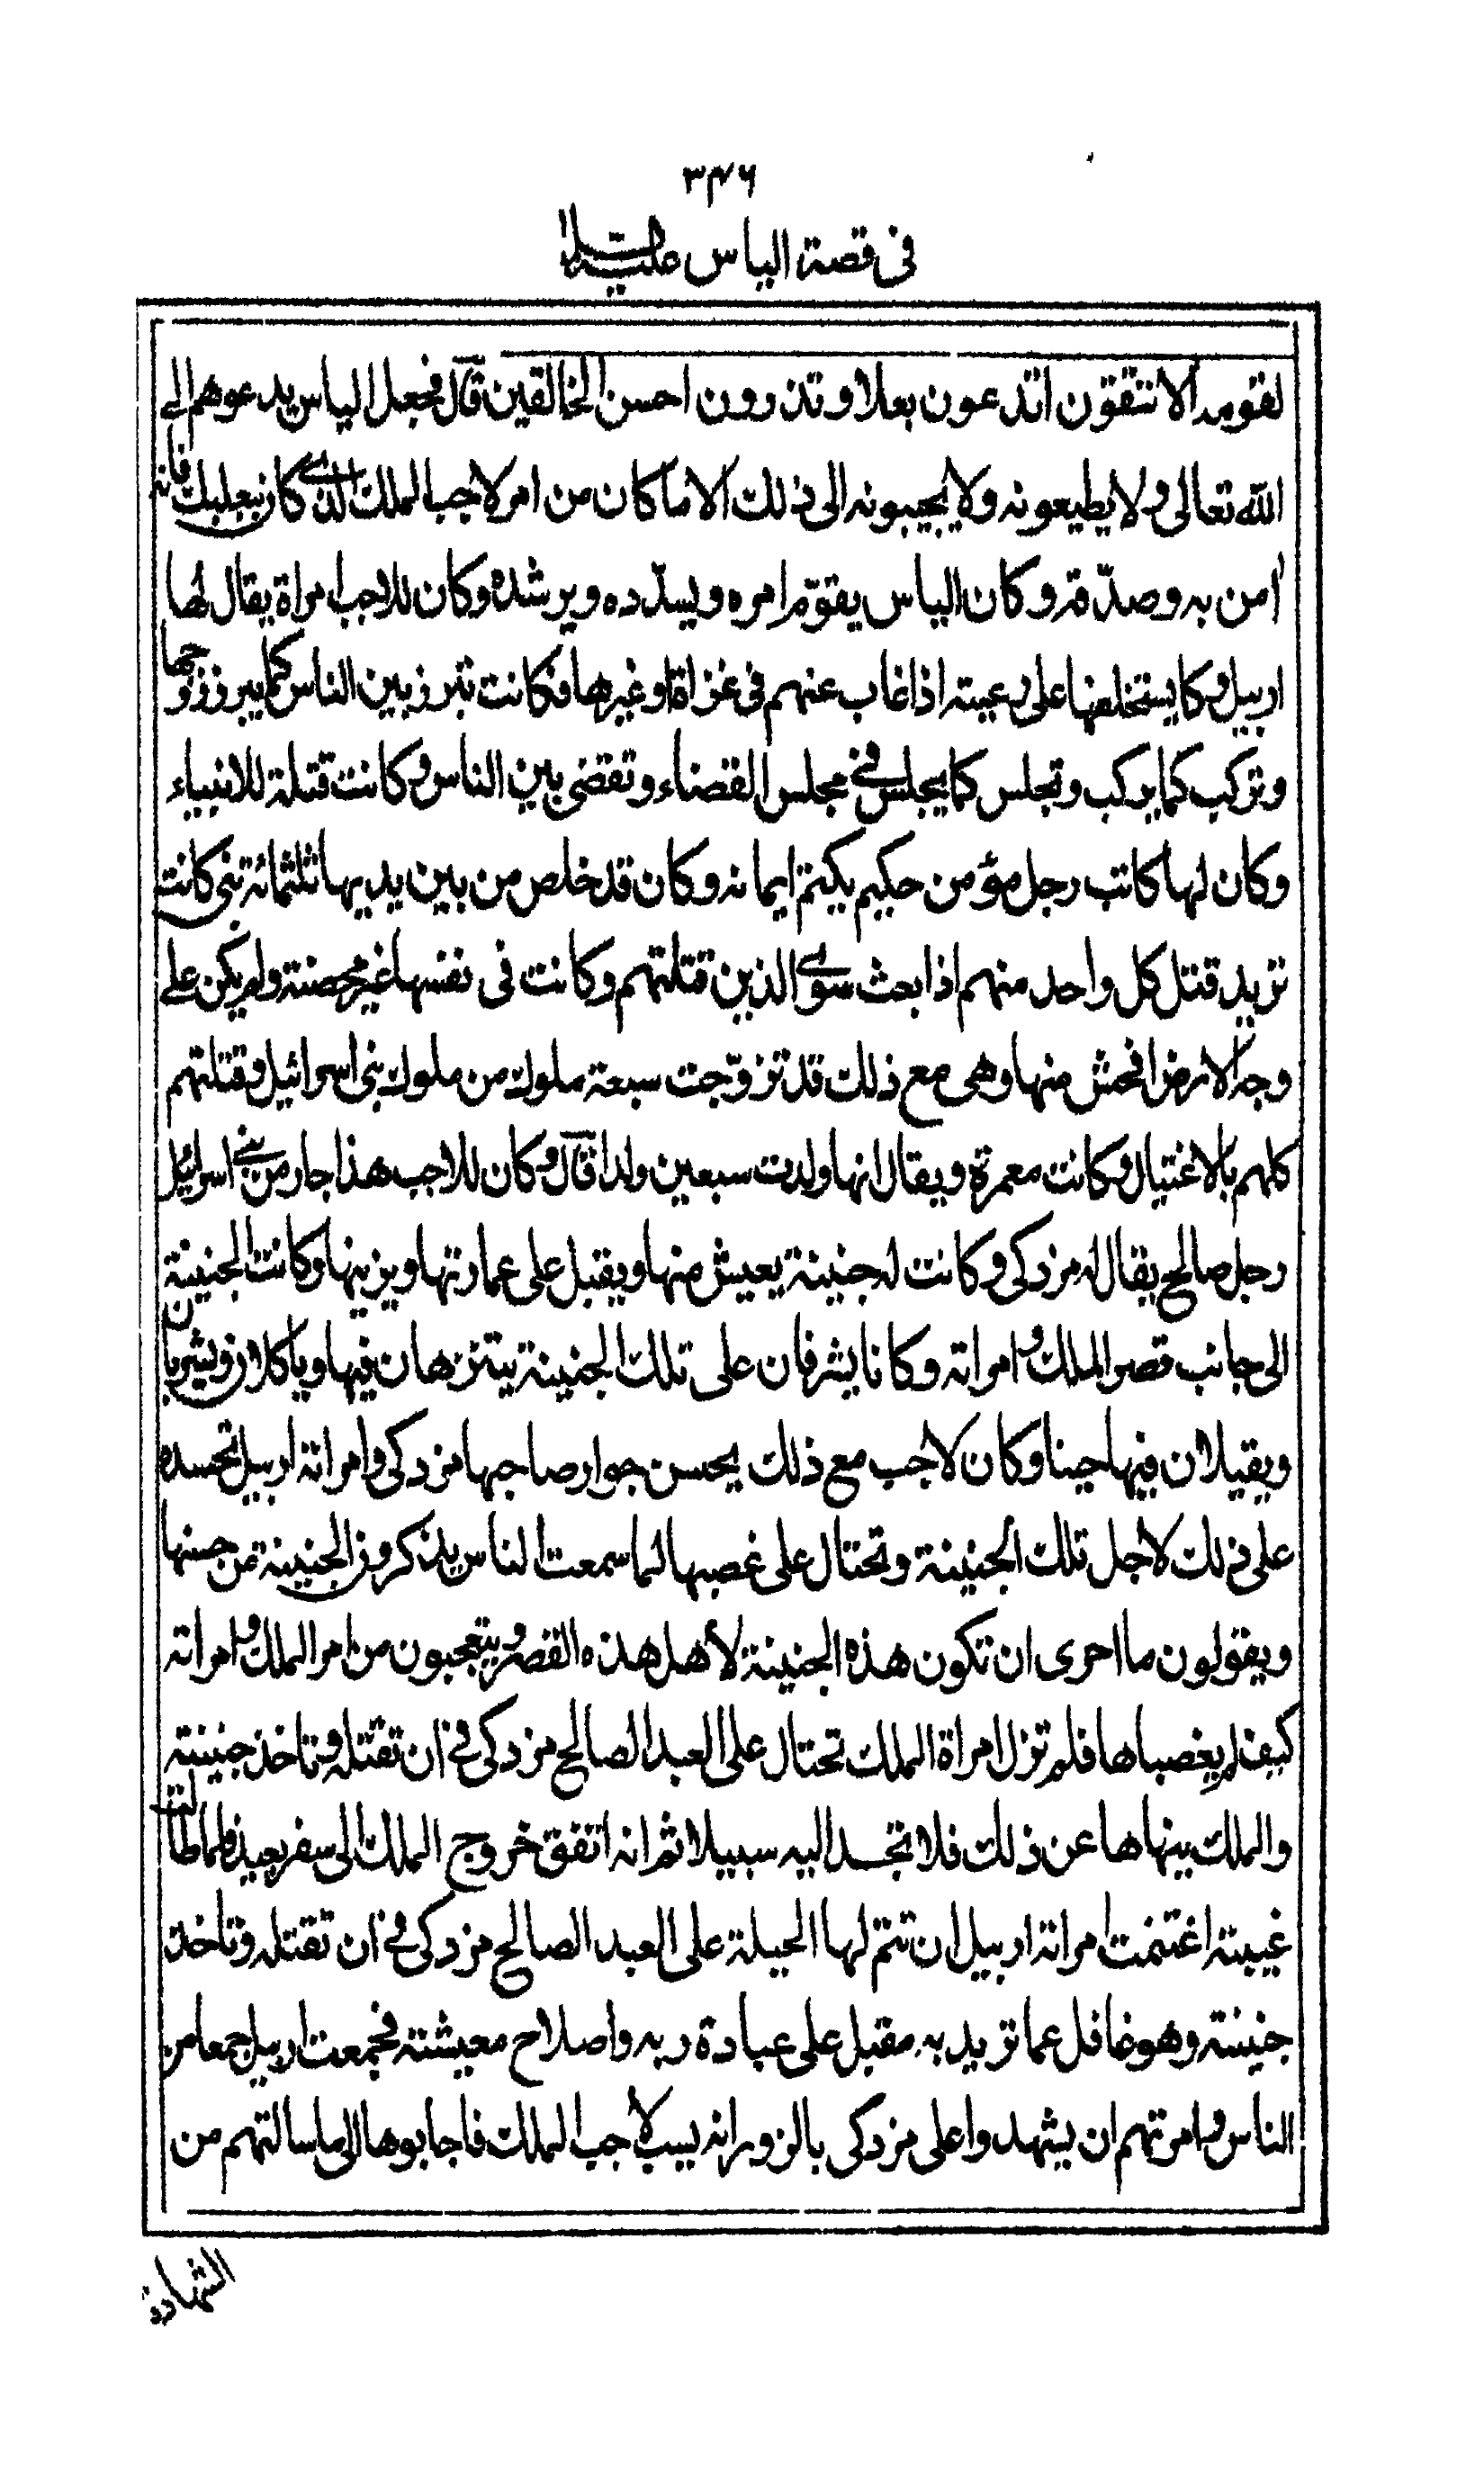 ٣٤٦
فى قصة الياس عليه السلام
لقومه الا تتقون اتدعون بعلا وتذرون احسن الخالقين قال فجعل الياس يدعوهم الى
الله تعالى ولا يطيعونه ولا يجيبونه الى ذلك الا ما كان من امر لاجب الملك الذى كان ببعلبك فانه
امن به وصدّقه وكان الياس يقوّم امره ويسدّده ويرشده وكان للاجب امراة يقال لها
اربيل وكا يستخلفها على رعيته اذا غاب عنهم فى غزاة او غيرها فكانت تبرز بين الناس كما يبرز زوجها
وتركب كما يركب وتجلس كما يجلس فى مجلس القضاء وتقضى بين الناس وكانت قتلة للانبياء
وكان لها كاتب رجل مؤمن حكيم يكتم ايمانه وكان قد خلص من بين يديها ثلثمائة نبى كانت
تريد قتل كل واحد منهم اذا بعث سوى الذين قتلتهم وكانت فى نفسها غير محصنة ولم يكن على
وجه الارض افحش منها وهى مع ذلك قد تزوّجت سبعة ملوك من ملوك بنى اسرائيل وقتلتهم
كلهم بالاغتيال وكانت معمرة ويقال انها ولدت سبعين ولدا قال وكان للاجب هذا جار من بنى اسرائيل
رجل صالح يقال له مزدكى وكانت له جنينة يعيش منها ويقبل على عمارتها ويزينها وكانت الجنينة
الى جانب قصر الملك وامراته وكانا يشرفان على تلك الجنينة يتنزهان فيها وياكلان ويشربان
ويقيلان فيها حينا وكان لاجب مع ذلك يحسن جوار صاحبها مزدكى وامراته اربيل تحسده
على ذلك لاجل تلك الجنينة وتحتال على غصبها لما سمعت الناس يذكرون الجنينة من حسنها
ويقولون ما احرى ان تكون هذه الجنينة لأهل هذه القصر ويتعجبون من امر الملك وامراته
كيف لم يغصباها فلم تزل امراة الملك تحتال على العبد الصالح مزدكى فى ان تقتله وتاخذ جنينته
والملك ينهاها عن ذلك فلا تجد اليه سبيلا ثم انه اتفق خروج الملك الى سفر بعيد فلما طالت
غيبته اغتنمت امراته اربيل ان تتم لها الحيلة على العبد الصالح مزدكى فى ان تقتله وتاخذ
جنينته وهو غافل عما تريد به مقبل على عبادة ربه واصلاح معيشته فجمعت اربيل جمعا من
الناس وامرتهم ان يشهدوا على مزدكى بالزور انه يسب لاجب الملك فاجابوها الى ما سالتهم من
الشهادة